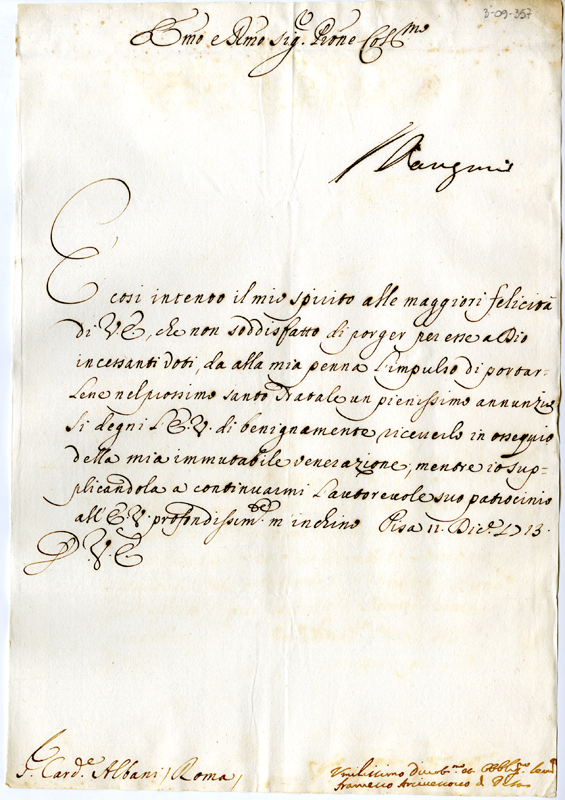 3-09-357
Emo e Rmo Sig.r Prone Col.mo
E cosi intento il mio spirito alle maggiori felicità
di VE, che non soddisfatto di porger per esse a Dio
incessanti voti, da alla mia penna l'impulso di portar-
Lene nel prossimo santo Natale un pienissimo annunzio
Si degni L'E.V. di benignamente riceverlo in ossequio
della mia immutabile venerazione, mentre io sup-
plicandola a continuarmi l'autorevole suo patrocinio
all'E.V. profondissim.te m'inchino Pisa 11. Dic.e 1713.
D.V.E.
S.r Card.e Albani / Roma /
Umilissimo Divot.mo et Obblig.mo
Francesco Arcivescovo di Pisa